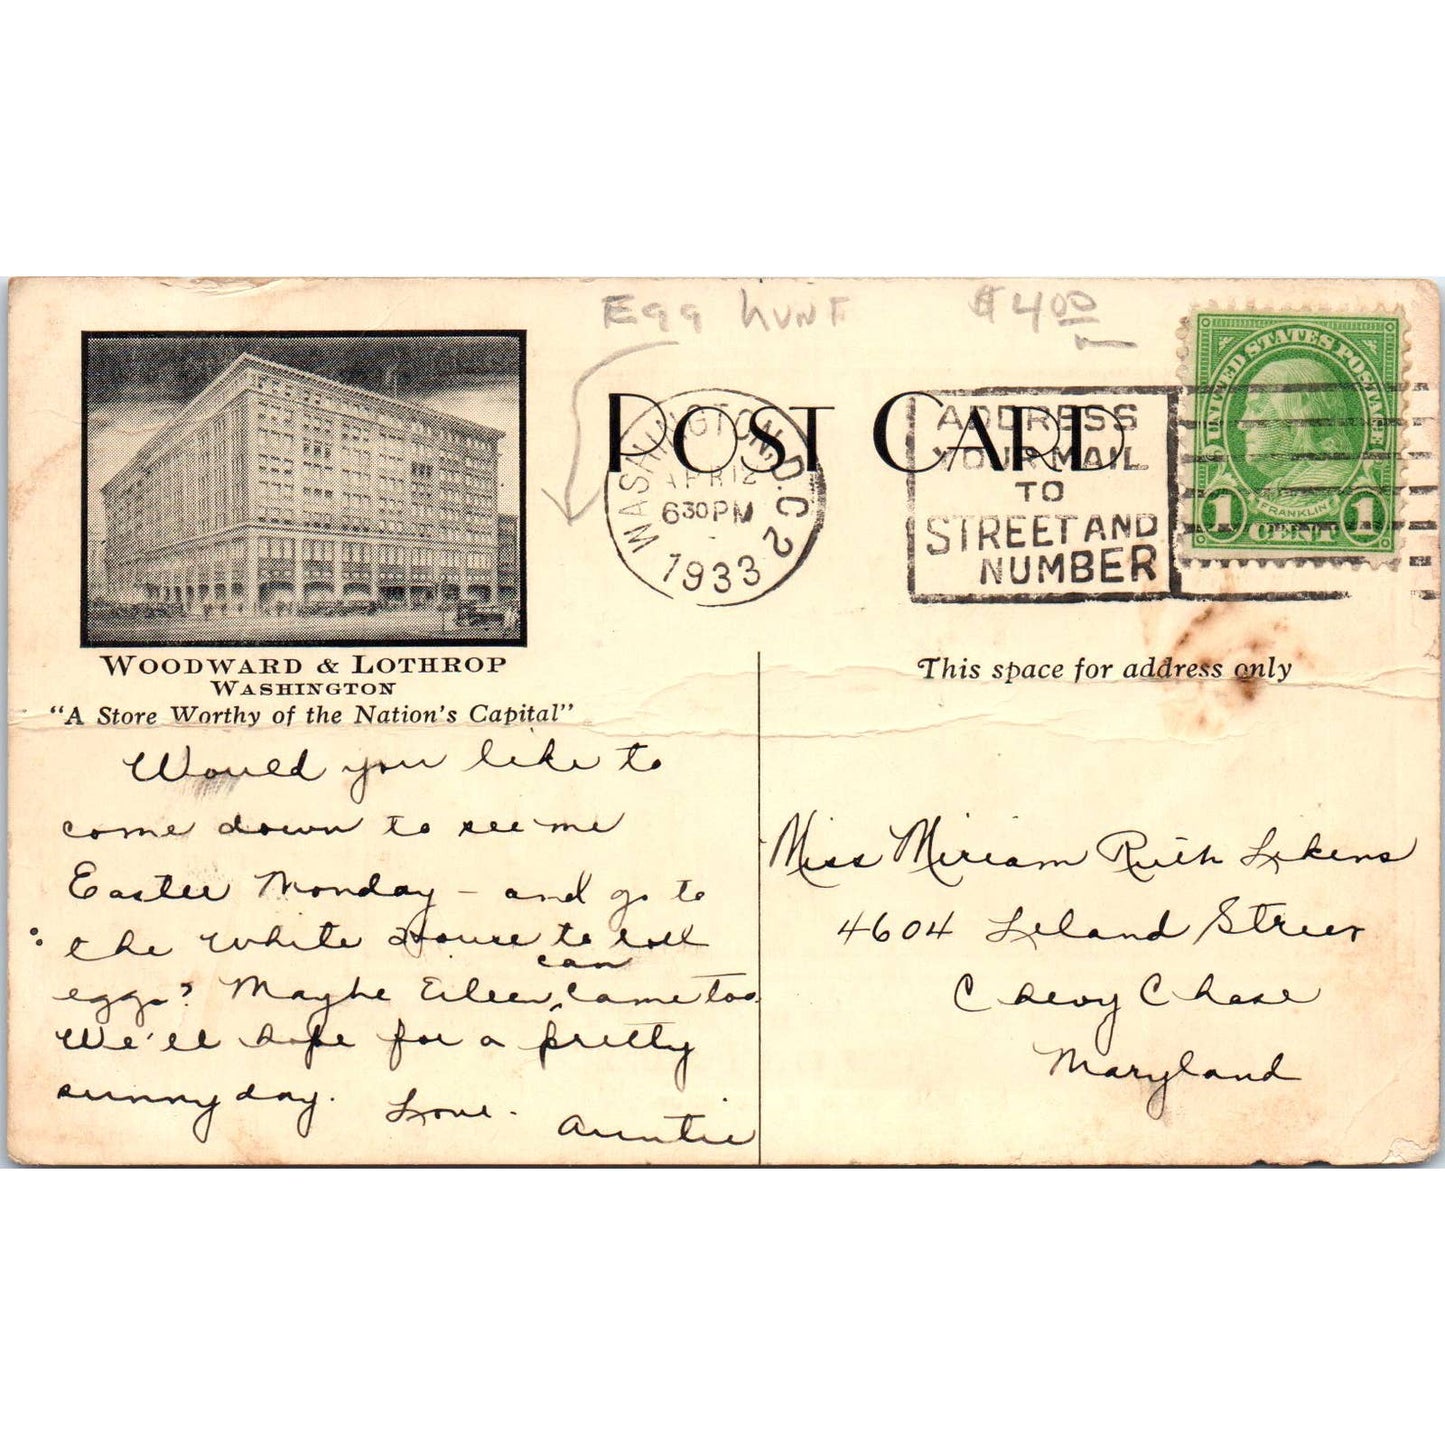 Egg hunt $4.00
POST CARD
WASHINGTON, D.C. 2
APR 12
6 30 PM
1933
ADDRESS
YOUR MAIL
TO
STREET AND
NUMBER
UNITED STATES POSTAGE
FRANKLIN
1 CENT 1
WOODWARD & LOTHROP
WASHINGTON
"A Store Worthy of the Nation's Capital"
This space for address only
Would you like to
come down to see me
Easter Monday – and go to
the White House to roll
eggs? Maybe Eileen can come too.
We'll hope for a pretty
sunny day. Love.
Auntie
Miss Miriam Ruth Likens
4604 Leland Street
Chevy Chase
Maryland